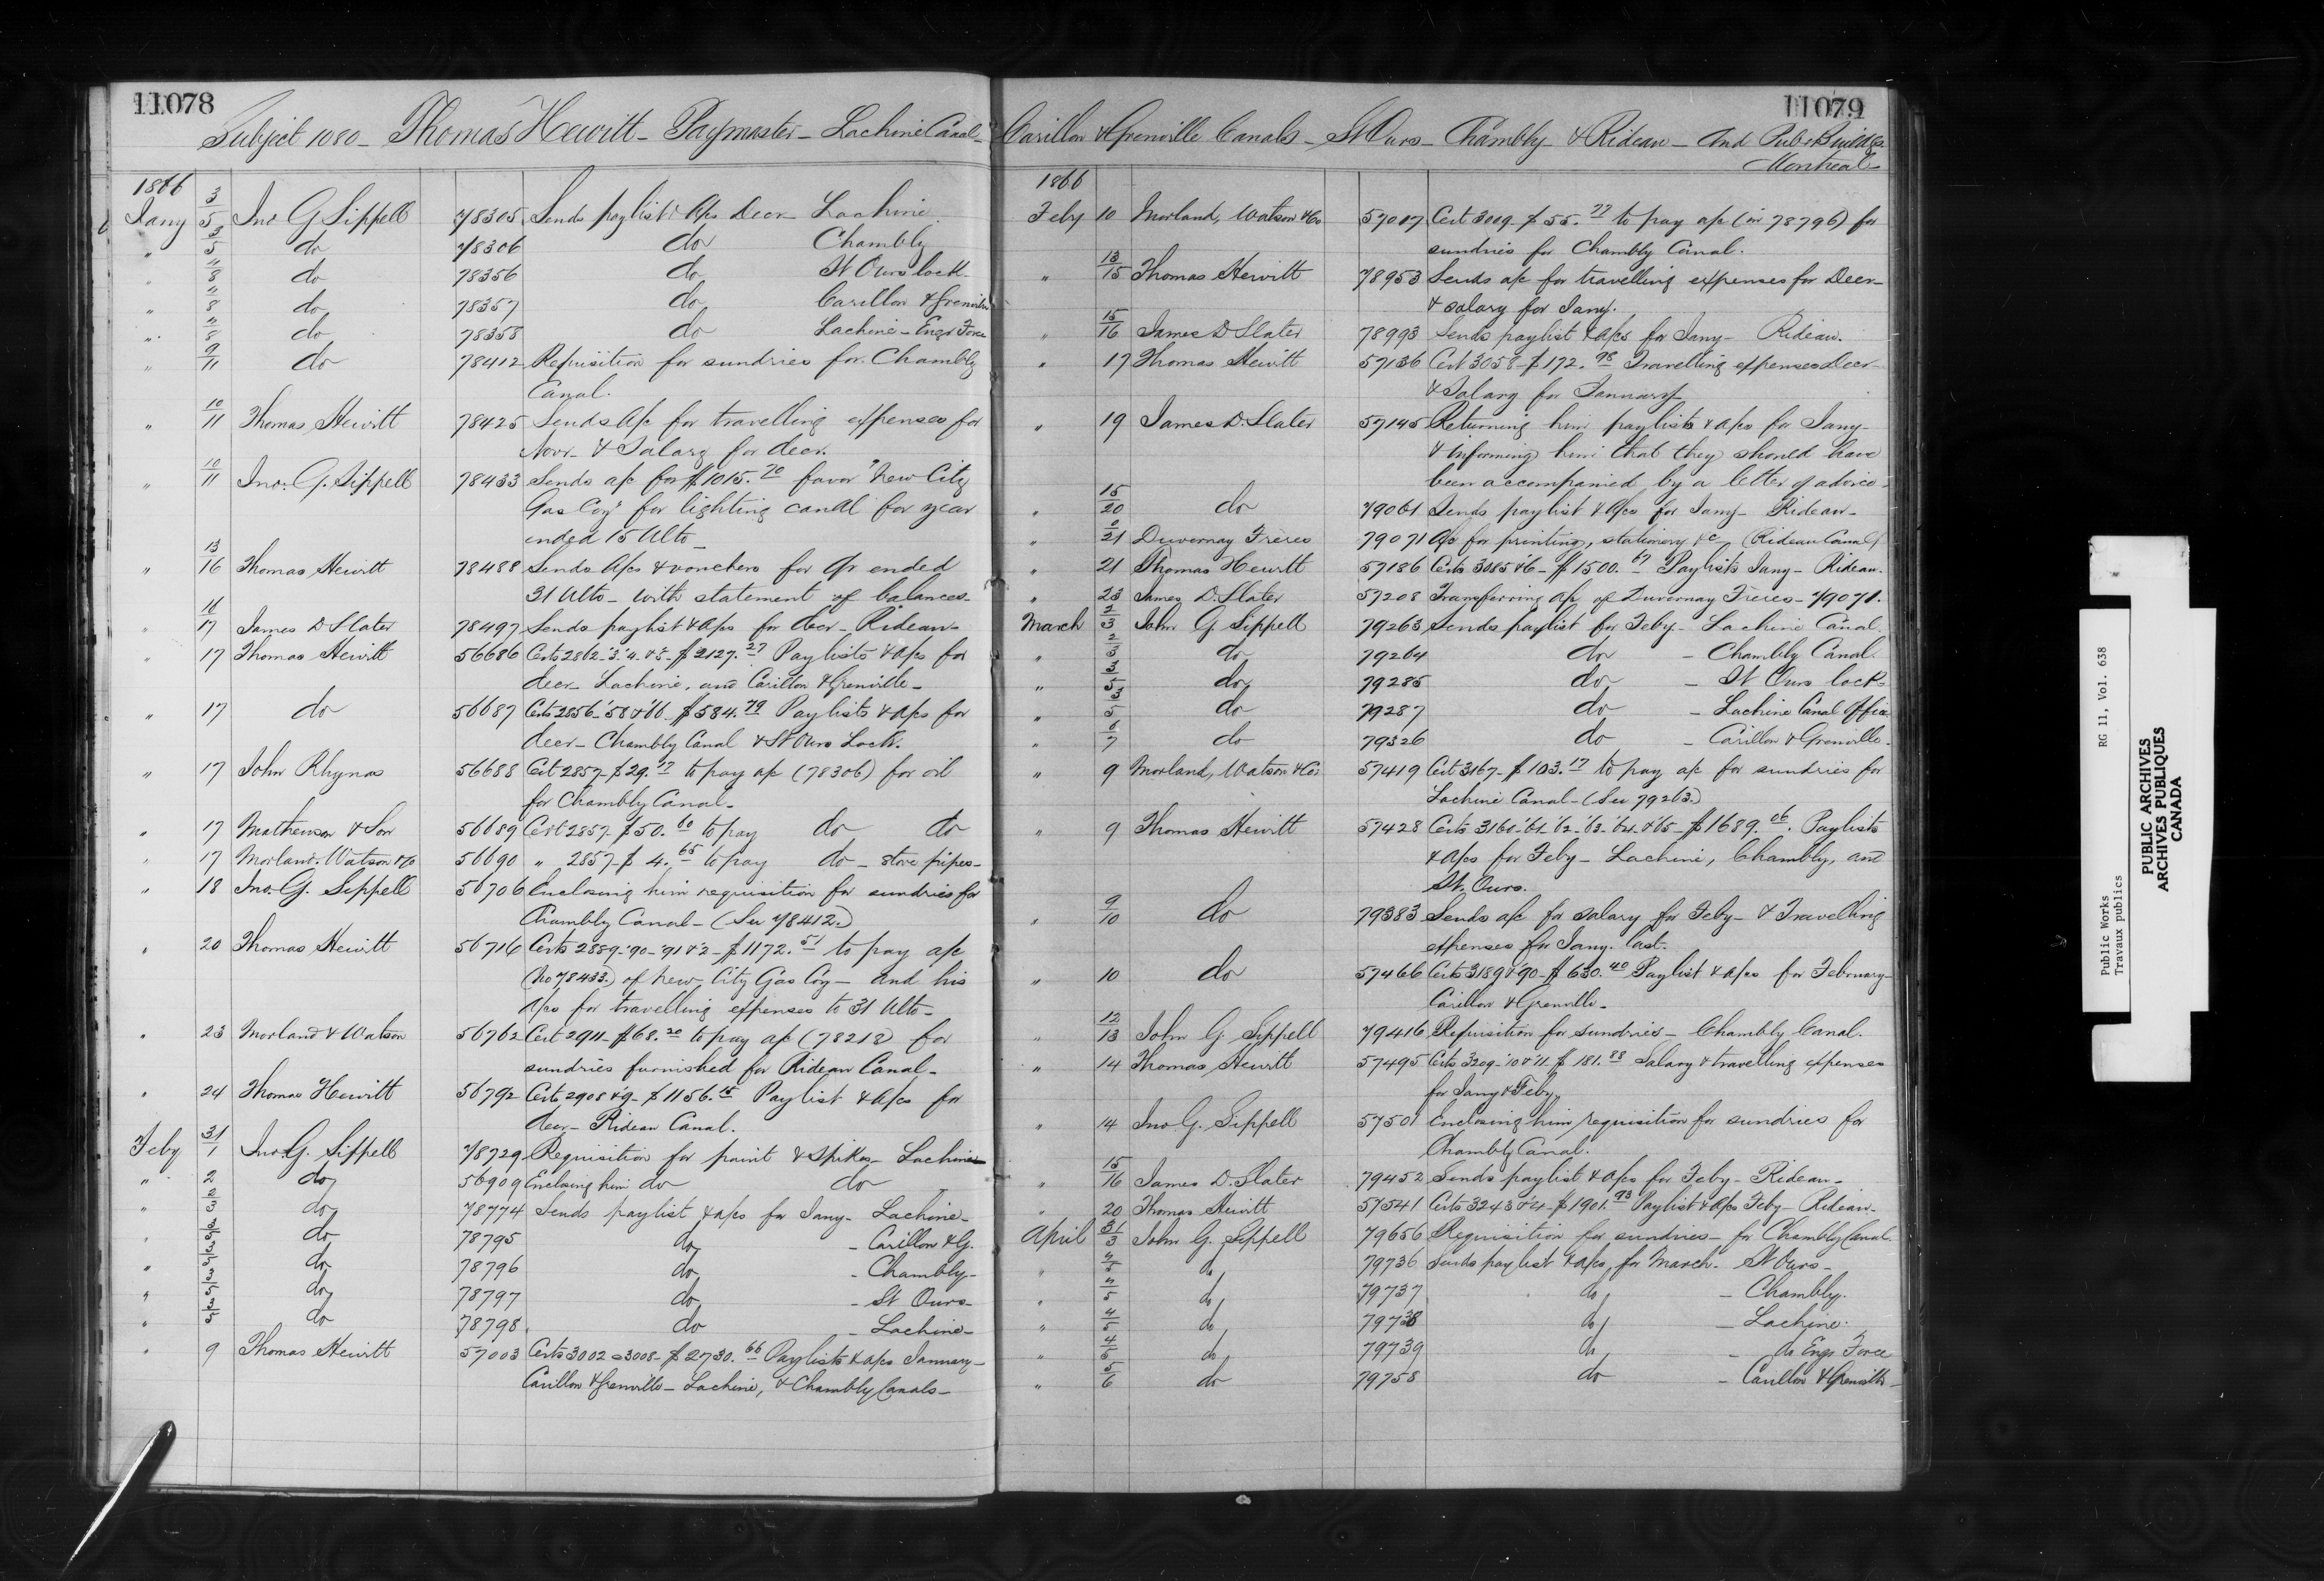 11078
Subject 1080 - Thomas Hewitt - Paymaster - Lachine Canal -
1866
Jany 3/5 Jno G Sippell 78305 Sends paylist & a/cs Decr Lachine
" 3/5 do 78306 do Chambly
" 4/8 do 78356 do St Ours lock
" 4/8 do 78357 do Carillon & Grenville
" 4/8 do 78358 do Lachine - Engr Force
" 9/11 do 78412 Requisition for sundries for Chambly
Canal.
" 10/11 Thomas Hewitt 78425 Sends a/c for travelling expenses for
Novr - & Salary for decr.
" 10/11 Jno. G. Sippell 78433 Sends a/c for $1015.70 favor "New City
Gas Coy" for lighting canal for year
ended 15 Ulto -
" 13/16 Thomas Hewitt 78488 Sends a/cs & vouchers for Qr ended
31 Ulto - with statement of balances -
" 16/17 James D Slater 78497 Sends paylist & a/cs for decr - Rideau -
" 17 Thomas Hewitt 56686 Certs 2862-'3.'4. & 5 - $2127.27 Paylists & a/cs for
decr - Lachine, and Carillon & Grenville -
" 17 do 56687 Certs 2856-'58 & '66 - $584.79 Paylists & a/cs for
decr - Chambly Canal & St Ours Lock.
" 17 John Rhynas 56688 Cert 2857 - $29.17 to pay a/c (78306) for oil
for Chambly Canal -
" 17 Mathewson & Son 56689 Cert 2857 - $50.60 to pay do do
" 17 Morland. Watson & Co 56690 " 2857 - $4.65 to pay do - stove pipes -
" 18 Jno. G. Sippell 56706 Enclosing him requisition for sundries for
Chambly Canal - (See 78412)
" 20 Thomas Hewitt 56716 Certs 2889-'90-'91 & '2 - $1172.51 to pay a/c
(No 78433.) of New City Gas Coy - and his
a/cs for travelling expenses to 31 Ulto -
" 23 Morland & Watson 56762 Cert 2911 - $68.20 to pay a/c (78218) for
sundries furnished for Rideau Canal -
" 24 Thomas Hewitt 56792 Certs 2908 & 9 - $1156.15 Paylist & a/cs for
decr - Rideau Canal.
Feby 31/1 Jno. G. Sippell 78729 Requisition for paint & spikes - Lachine
" 2 do 56909 Enclosing him do do
" 2/3 do 78774 Sends paylist & a/cs for Jany - Lachine -
" 2/3 do 78795 do - Carillon & G.
" 2/3 do 78796 do - Chambly -
" 3/5 do 78797 do - St Ours -
" 3/5 do 78798 do - Lachine -
" 9 Thomas Hewitt 57003 Certs 3002 @ 3008 - $2730.66 Paylists & a/cs January -
Carillon & Grenville - Lachine, & Chambly Canals -
11079
Carillon & Grenville Canals - St Ours - Chambly & Rideau - And Pub: Buildgs
Montreal -
1866
Feby 10 Morland, Watson & Co 57017 Cert 3009 - $55.77 to pay a/c (in 78796) for
sundries for Chambly Canal.
" 13/15 Thomas Hewitt 78953 Sends a/c for travelling expenses for Decr -
& salary for Jany.
" 15/16 James D Slater 78993 Sends paylist & a/cs for Jany - Rideau.
" 17 Thomas Hewitt 57136 Cert 3058 - $172.98 Travelling expenses Decr -
& Salary for January
" 19 James D. Slater 57145 Returning him paylists & a/cs for Jany -
& informing him that they should have
been accompanied by a letter of advice -
" 15/20 do 79061 Sends paylist & a/cs for Jany - Rideau -
" 0/21 Duvernay Frères 79071 A/c for printing, stationery &c - (Rideau Canal)
" 21 Thomas Hewitt 57186 Certs 3085 & 6 - $1500.67 Paylists Jany - Rideau.
" 23 James D. Slater 57208 Transferring a/c of Duvernay Frères - 79071.
March 2/3 John G. Sippell 79263 Sends paylist for Feby - Lachine Canal.
" 2/3 do 79264 do - Chambly Canal.
" 3/5 do 79285 do - St Ours lock -
" 3/5 do 79287 do - Lachine Canal Office
" 6/7 do 79326 do - Carillon & Grenville -
" 9 Morland, Watson & Co. 57419 Cert 3167 - $103.17 to pay a/c for sundries for
Lachine Canal - (See 79263.)
" 9 Thomas Hewitt 57428 Certs 3161-'61-'62-'63-'64 & '65 - $1689.06. Paylists
& a/cs for Feby - Lachine, Chambly, and
St. Ours.
" 9/10 do 79383 Sends a/c for salary for Feby - & Travelling
expenses for Jany. last.
" 10 do 57466 Certs 3189 & '90 - $630.40 Paylist & a/cs for February -
Carillon & Grenville -
" 12/13 John G. Sippell 79416 Requisition for sundries - Chambly Canal.
" 14 Thomas Hewitt 57495 Certs 3209-'10 & '11 - $181.88 Salary & travelling expenses
for Jany & Feby.
" 14 Jno G. Sippell 57501 Enclosing him requisition for sundries for
Chambly Canal.
" 15/16 James D. Slater 79452 Sends paylist & a/cs for Feby - Rideau -
" 20 Thomas Hewitt 57541 Certs 3243 & 4 - $1901.93 Paylist & a/cs Feby - Rideau -
April 31/3 John G. Sippell 79656 Requisition for sundries - for Chambly Canal
" 4/5 do 79736 Sends paylist & a/cs, for March - St Ours -
" 4/5 do 79737 do - Chambly.
" 4/5 do 79738 do - Lachine.
" 4/5 do 79739 do - do Engr Force
" 5/6 do 79758 do - Carillon & Grenville -
Public Works RG 11, Vol. 638
Travaux publics
PUBLIC ARCHIVES
ARCHIVES PUBLIQUES
CANADA